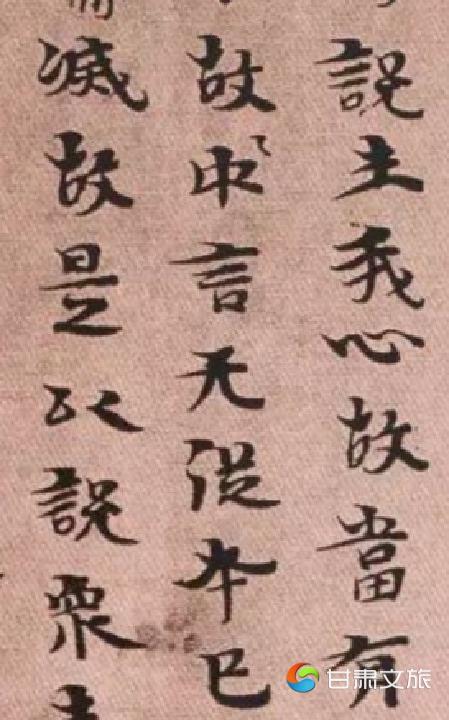 說主我心故當有
故中言无從本已
滅故是以說衆
甘肃文旅